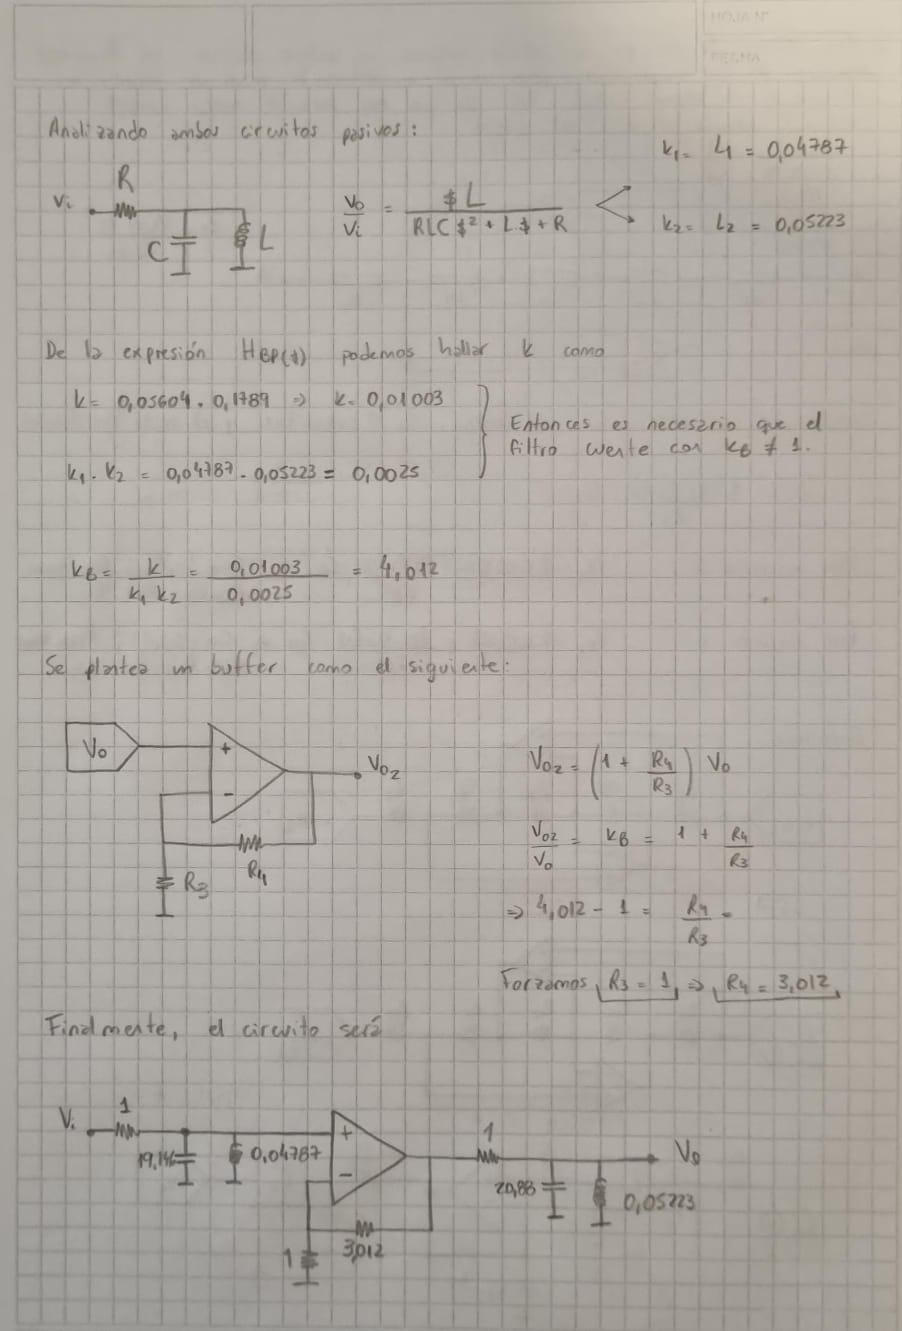 HOJA N°
FECHA
Analizando ambos circuitos pasivos:
k₁ = L₁ = 0,04787
R
Vi
Vo/Vi = $ L / (RLC $² + L $ + R)
k₂ = L₂ = 0,05223
C
L
De la expresión HBP($) podemos hallar k como
k = 0,05604 . 0,1789 ⇒ k = 0,01003
k₁ . k₂ = 0,04787 . 0,05223 = 0,0025
Entonces es necesario que el
filtro cuente con kB ≠ 1.
kB = k / (k₁ k₂) = 0,01003 / 0,0025 = 4,012
Se plantea un buffer como el siguiente:
Vo
+
-
Vo2
R4
R3
Vo2 = (1 + R4/R3) Vo
Vo2/Vo = kB = 1 + R4/R3
⇒ 4,012 - 1 = R4/R3
Forzamos R3 = 1 ⇒ R4 = 3,012
Finalmente, el circuito será
Vi
1
19,146
0,04787
+
-
3,012
1
1
20,88
0,05223
Vo